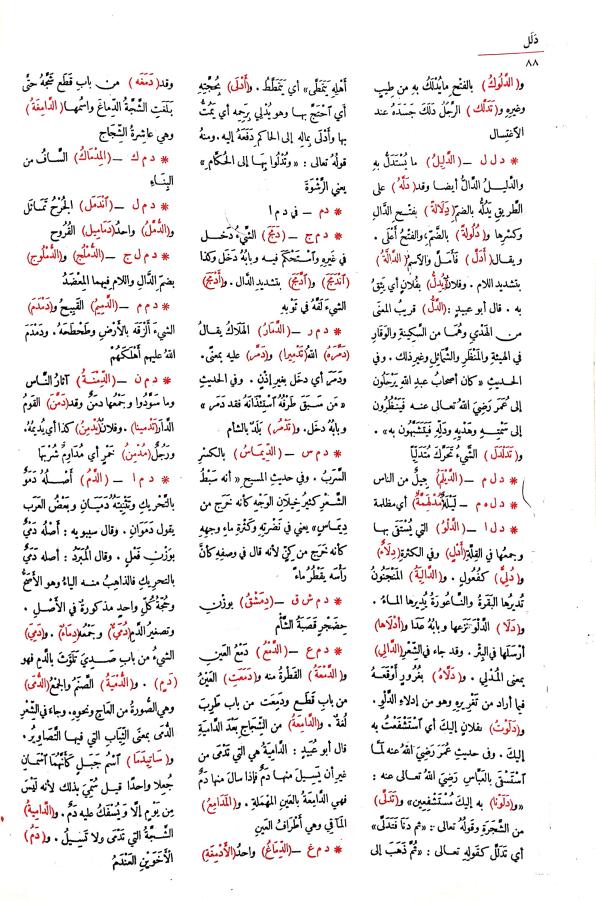 دَلَل
٨٨
و(الدَّلُوكُ) بالفتح مايُدْلَكُ به من طِيبٍ
وغيره و(تَدَلَّك) الرَّجُلُ دَلَكَ جَسَدَهُ عند
الاغتسال
* د ل ل – (الدَّلِيلُ) ما يُسْتَدَلُّ به
والدليــلُ الدَّالُّ أيضا وقد(دَلَّهُ) على
الطريق يَدُلُّه بالضمّ (دَلَالة) بفتــح الدَّالِ
وكسْرِها و(دُلُولةً) بالضَّمّ، والفتحُ أَعْلَى .
و يقــال (أَدَلَّ) فَأَمَلَّ والآســمُ (الدَّالَّةُ)
بتشديد اللام . وفلانٌ(يُدِلُّ) بفُلانٍ أي يَثِقُ
به . قال أبو عبيد :(الدَّلُّ) قريبُ المعنَى
من الهَدْيِ وهُمَا من السَّكِينةِ والوَقَارِ
في الهيئةِ والمَنْظَرِ والشَّمَائلِ وغيرذلك . وفي
الحديثِ «كان أصحابُ عبدِ اللهِ يَرْحَلُونَ
إلى عُمَرَ رَضِيَ اللهُ تعالى عنــه فيَنْظُرُونَ
إلى سَمْتِــهِ وهَدْيِهِ ودَلِّهِ فيَتَشَبَّهُونَ به» .
و(تَدَلْدَلَ) الشيءُ تَحَرَّكَ مُتَدَلِّيًا
* د ل م – (الدَّيْلَمُ) جِيلٌ من الناس
* د ل ه م – لَيْلَةٌ(مُدْلَهِمَّةٌ) أي مظلمة
* د ل ا – (الدَّلْوُ) التي يُسْتَقَى بها
وجمعُها في القِلَّةِ(أَدْلٍ) وفي الكثرة(دِلَاءٌ)
و(دُلِيٌّ) كفُعُولٍ . و(الدَّالِيَةُ) المَنْجَنُونُ
تُدِيرُها البَقَرةُ والنَّاعُورَةُ يُدِيرُها المـاءُ .
و(دَلَا) الدَّلْوَ نَزَعها وبابُهُ عَدَا و(أَدْلَاها)
أَرْسَلَها فى البِئْرِ . وقد جاء في الشعر(الدَّالِي)
بمعنى المُدْلِي . و(دَلَّاهُ) بغُرُورٍ أَوْقَعَــهُ
فيما أراد من تَغْرِيرِهِ وهو من إدلاءِ الدَّلْوِ .
و(دَلَوْتُ) بفلانٍ إليكَ أي آسْتَشْفَعْتُ به
إليك . وفي حديثِ عُمَرَ رَضِيَ اللهُ عنه لَمَّا
آسْتَسْقَى بالعَبَّاسِ رَضِيَ اللهُ تعالى عنه :
«و(دَلَوْنَا) به إليكَ مُسْتَشْفِعِين» و(تَدَلَّى)
من الشَّجَرةِ وقولُهُ تعالى :ـ «ثم دَنَا فَتَدَلَّى»
أي تَدَلَّلَ كقولِهِ تعــالى : «ثُمَّ ذَهَبَ إلى
أَهْلِهِ يَتَمَطَّى» أي يَتَمَطَّطُ . و(أَدْلَى) بحُجَّتِهِ
أي آحْتَجَّ بها وهو يُدْلِي بِرَحِمِه أي يَمُتُّ
بها وأَدْلَى بماله إلى الحاكم دَفَعَهُ إليه.ومنهُ
قولُهُ تعالى : «وتُدْلُوا بِهَا إلَى الحُكَّامِ»
يعني الرَّشْوَةَ
* دم – فى د م ا
* د م ج – (دَمَجَ) الشيءُ دَخَــل
في غيرِهِ وآسْتَحْكَمَ فيه وبابُهُ دَخَلَ وكذا
(آندَمَجَ) و(آدَّمَجَ) بتشديد الدَّال . و(أَدْمَجَ)
الشيءَ لَفَّهُ في ثَوْبِهِ
* د م ر – (الدَّمَارُ) الهَلاكُ يقــالُ
(دَمَّرَهُ) اللهُ(تَدْمِيرا) و(دَمَّرَ) عليه بمعنًى.
ودَمَرَ أي دخَل بغيرِ إذْنٍ . وفي الحديثِ
«مَن سَبَقَ طَرْفُهُ آسْتِئْذَانَهُ فقد دَمَرَ»
وبابُهُ دخَل. و(تَدْمُرُ) بَلَدٌ بالشام
* د م س – (الدِّيمَاسُ) بالكسْرِ
السَّرَبُ . وفي حديثِ المسيحِ «أنه سَبْطُ
الشَّعْرِ كثيرُ خِيلَانِ الوَجْهِ كأنه خَرَج من
دِيمَاسٍ» يعني في نَضْرتِهِ وكَثْرةِ ماءِ وجهِهِ
كأنه خَرَج من كِنٍّ لأنه قال في وصفِهِ كأنَّ
رَأْسَه يَقْطُرُ ماءً
* د م ش ق – (دِمَشْقُ) بوزنِ
حِضَجْرٍ قَصَبةُ الشَّأْمِ
* د م ع – (الدَّمْعُ) دَمْعُ العَينِ
و(الدَّمْعَةُ) القَطْرةُ منه و(دَمَعَتِ) العَيْنُ
من باب قَطَــع ودَمِعَت من باب طَرِبَ
لُغةٌ . و(الدَّامِعَةُ) من الشِّجاجِ بَعْدَ الدَّامِيَةِ
قال أبو عُبَيدٍ : الدَّامِيَةُ هي التي تَدْمَى من
غير أن يَسِيلَ منها دَمٌ فإذا سالَ منها دَمٌ
فهي الدَّامِعةُ بالعين المهملةِ. و(المَدَامِعُ)
المآقي وهي أَطْرافُ العَيْنِ
* د م غ – (الدِّمَاغُ) واحدُ(الأَدْمِغَةِ)
وقد(دَمَغَه) من باب قَطَع شَجَّهُ حتَّى
بَلَغتِ الشَّجَّةُ الدِّماغَ واسمُها(الدَّامِغَةُ)
وهي عاشِرةُ الشِّجَاج
* د م ك – (المِدْمَاكُ) السَّافُ من
البِناءِ
* د م ل – (آنْدَمَلَ) الجُرْحُ تَمَاثَل
و(الدُّمَّلُ) واحدُ(دَمَامِيلِ) القُروح
* د م ل ج – (الدُّمْلُجُ) و(الدُّمْلُوجُ)
بضمّ الدَّالِ واللام فيهما المِعْضَدُ
* د م م – (الدَّمِيمُ) القَبِيحُ و(دَمْدَمَ)
الشيءَ أَلْزَقَه بالأرْضِ وطَحْطَحَهُ. ودَمْدَمَ
اللهُ عليهم أَهْلَكَهُمْ
* د م ن – (الدِّمْنَــةُ) آثارُ النَّاس
وما سَوَّدُوا وجَمْعُها دِمَنٌ وقد(دَمَّنَ) القَومُ
الدَّارَ(تَدْمِينا). وفلانٌ(يُدْمِنُ) كذا أي يُدِيمُهُ.
ورَجُلٌ(مُدْمِنُ) خَمْرٍ أي مُدَاوِمٌ شُرْبَهَا
* د م ا – (الدَّمُ) أصْلُـهُ دَمَوٌ
بالتَّحْرِيكِ وتَثْنِيَتُهُ دَمَيَانِ وبعضُ العَرَبِ
يقول دَمَوَانِ . وقال سيبويه : أَصْلُهُ دَمْيٌ
بوَزْنِ فَعْلٍ . وقال المُبَرِّدُ : أصلُه دَمَيٌ
بالتحريكِ فالذاهبُ منــه الياءُ وهو الأَصَحُّ
وحُجَّةُ كُلِّ واحدٍ مذكورةٌ في الأَصْلِ .
وتصغيرُ الدَّمِ(دُمَيٌّ) و جَمْعُهُ(دِمَاءٌ). و(دَمِيَ)
الشيءُ من بابِ صَــدِيَ تَلَوَّثَ بالدَّمِ فهو
(دَمٍ) . و(الدُّمْيَةُ) الصَّنَمُ والجَمْعُ(الدُّمَى)
وهي الصُّورةُ من العَاجِ ونحوِه. وجاء في الشِّعْرِ
الدُّمَى بمعنى الثِّيابِ التي فيهــا التَّصَاوِيرُ .
و( سَاتِيدَمَا) آسْمُ جَبــلٍ كأنّهما آسْمَانِ
جُعِلا واحدًا قيــل سُمِّيَ بذلك لأنه ليس
مِن يَوْمٍ إلّا وَيُسْفَكُ عليه دَمٌ . و(الدَّامِيةُ)
الشَّجَّةُ التي تَدْمَى ولا تَسِيلُ . و(دَمُ)
الأَخَوَيْنِ العَنْدَمُ